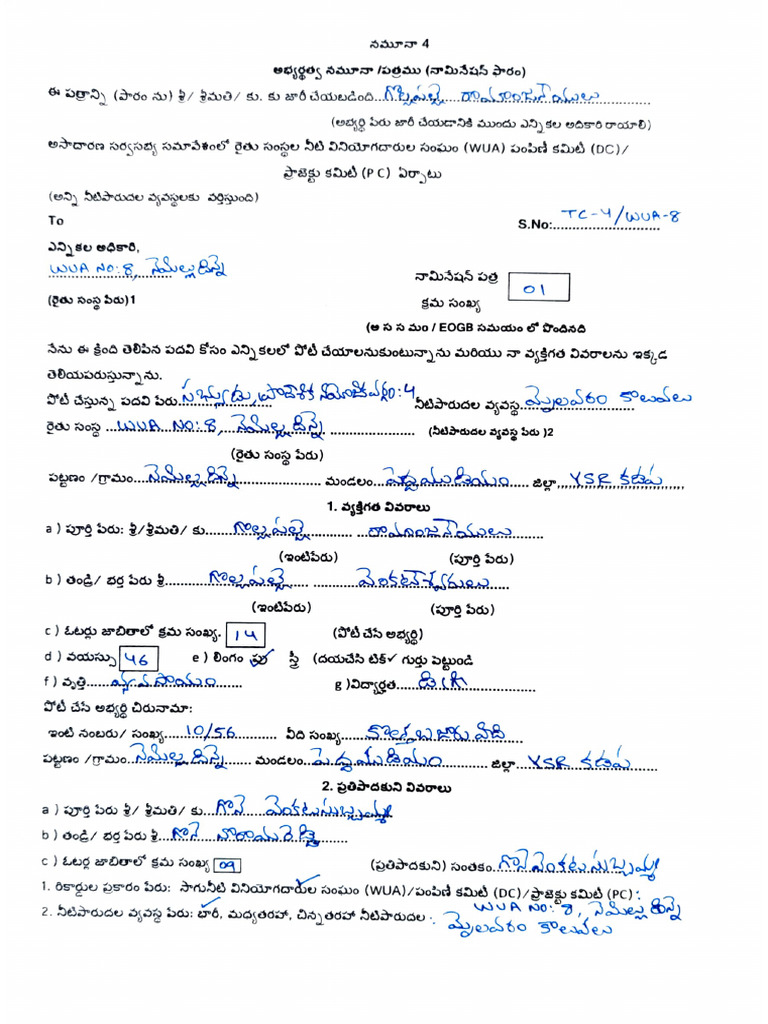 నమూనా 4
అభ్యర్థిత్వ నమూనా /పత్రము (నామినేషన్ ఫారం)
ఈ పత్రాన్ని (ఫారం ను) శ్రీ/ శ్రీమతి/ కు. కు జారీ చేయబడింది...గొల్లపల్లె రామాంజనేయులు
(అభ్యర్థి పేరు జారీ చేయడానికి ముందు ఎన్నికల అధికారి రాయాలి)
అసాధారణ సర్వసభ్య సమావేశంలో రైతు సంస్థల నీటి వినియోగదారుల సంఘం (WUA) పంపిణీ కమిటీ (DC)/
ప్రాజెక్టు కమిటీ (PC) ఏర్పాటు
(అన్ని నీటిపారుదల వ్యవస్థలకు వర్తిస్తుంది)
To
S.No:...TC-4/WUA-8
ఎన్నికల అధికారి,
WUA NO: 8, నెమళ్లదిన్నె
నామినేషన్ పత్ర
(రైతు సంస్థ పేరు)1
క్రమ సంఖ్య 01
(అ స స మం / EOGB సమయం లో పొందినది
నేను ఈ క్రింది తెలిపిన పదవి కోసం ఎన్నికలలో పోటీ చేయాలనుకుంటున్నాను మరియు నా వ్యక్తిగత వివరాలను ఇక్కడ
తెలియపరుస్తున్నాను.
పోటీ చేస్తున్న పదవి పేరు...సభ్యుడు, ప్రాదేశిక నియోజకవర్గం: 4 నీటిపారుదల వ్యవస్థ...మైలవరం కాలువలు
రైతు సంస్థ ...WUA NO: 8, నెమళ్లదిన్నె... (నీటిపారుదల వ్యవస్థ పేరు)2
(రైతు సంస్థ పేరు)
పట్టణం /గ్రామం...నెమళ్లదిన్నె... మండలం...పెద్దముడియం... జిల్లా...YSR కడప
1. వ్యక్తిగత వివరాలు
a ) పూర్తి పేరు: శ్రీ/శ్రీమతి/ కు...గొల్లపల్లె... రామాంజనేయులు
(ఇంటిపేరు) (పూర్తి పేరు)
b ) తండ్రి/ భర్త పేరు శ్రీ...గొల్లపల్లె... వెంకటేశ్వర్లు
(ఇంటిపేరు) (పూర్తి పేరు)
c ) ఓటర్లు జాబితాలో క్రమ సంఖ్య. 14 (పోటీ చేసే అభ్యర్థి)
d ) వయస్సు 46 e ) లింగం పు ✓ స్త్రీ (దయచేసి టిక్✓ గుర్తు పెట్టండి
f ) వృత్తి...వ్యవసాయం... g )విద్యార్హత...డిగ్రీ
పోటీ చేసే అభ్యర్థి చిరునామా:
ఇంటి నంబరు/ సంఖ్య...10/56... వీధి సంఖ్య...కొత్తబజారు వీధి
పట్టణం /గ్రామం...నెమళ్లదిన్నె... మండలం...పెద్దముడియం... జిల్లా...YSR కడప
2. ప్రతిపాదకుని వివరాలు
a ) పూర్తి పేరు శ్రీ/ శ్రీమతి/ కు...గోనె వెంకటసుబ్బమ్మ
b ) తండ్రి/ భర్త పేరు శ్రీ...గోనె నారాయణరెడ్డి
c ) ఓటర్ల జాబితాలో క్రమ సంఖ్య 09 (ప్రతిపాదకుని) సంతకం...గోనె వెంకటసుబ్బమ్మ
1. రికార్డుల ప్రకారం పేరు: సాగునీటి వినియోగదారుల సంఘం (WUA)/పంపిణీ కమిటీ (DC)/ప్రాజెక్టు కమిటీ (PC):
WUA NO: 8, నెమళ్లదిన్నె
2. నీటిపారుదల వ్యవస్థ పేరు: భారీ, మధ్యతరహా, చిన్నతరహా నీటిపారుదల :
మైలవరం కాలువలు